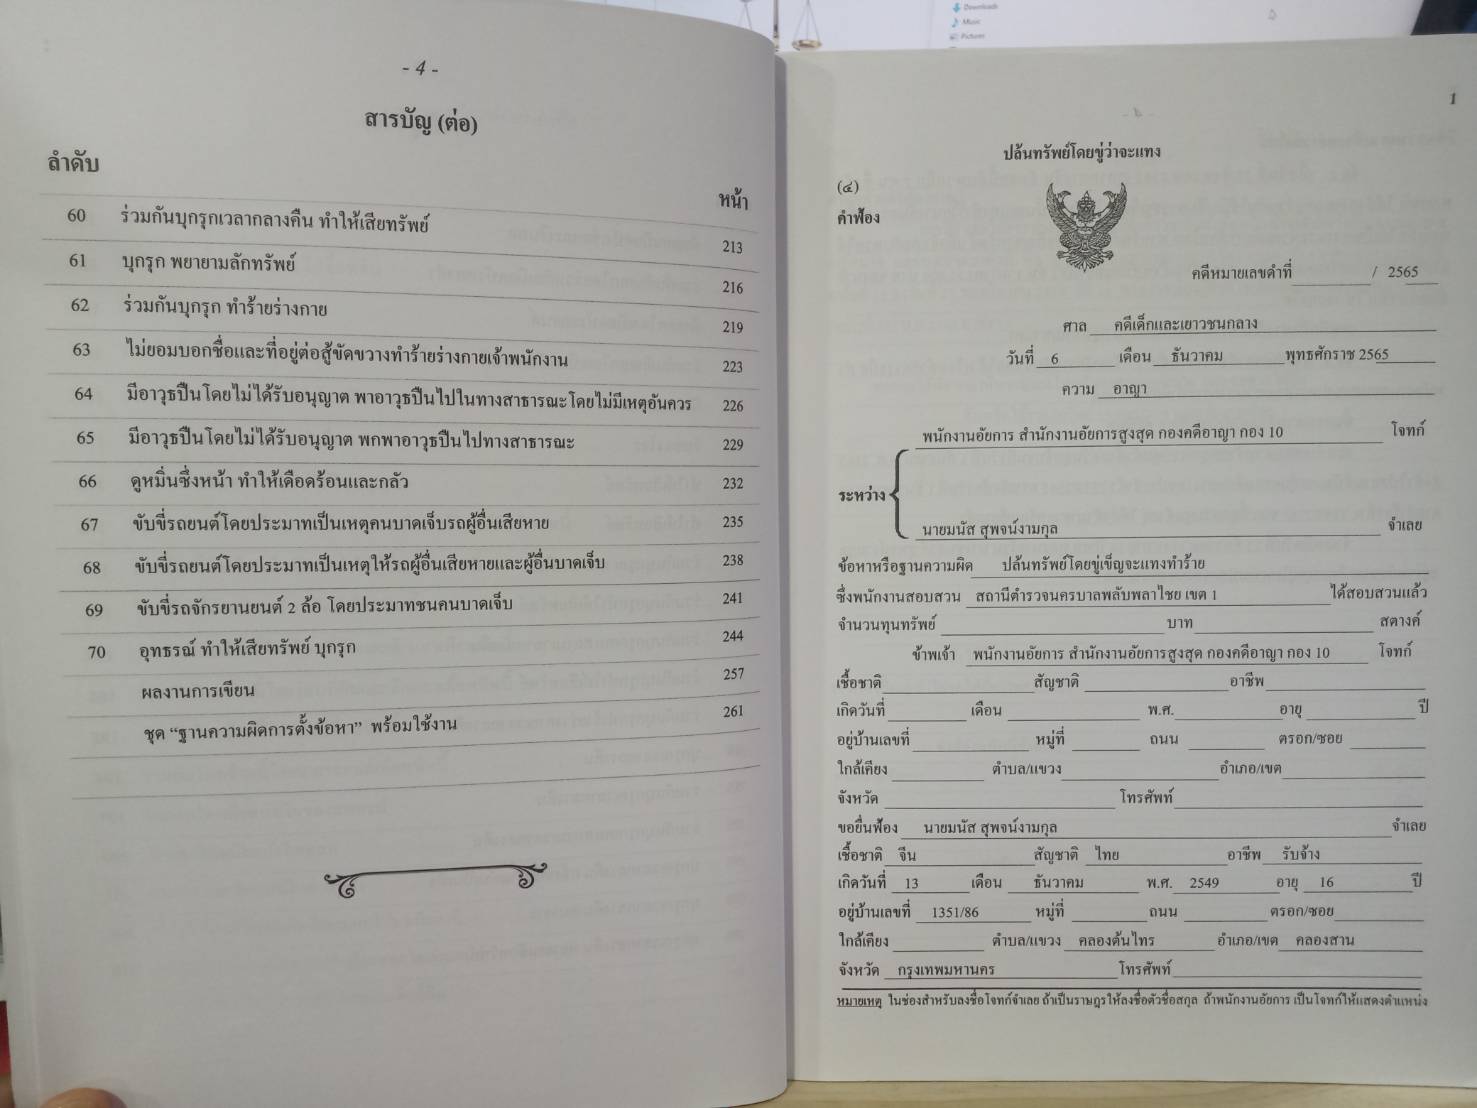 Downloads
Music
Pictures
- 4 -
สารบัญ (ต่อ)
ลำดับ
หน้า
60 ร่วมกันบุกรุกเวลากลางคืน ทำให้เสียทรัพย์ 213
61 บุกรุก พยายามลักทรัพย์ 216
62 ร่วมกันบุกรุก ทำร้ายร่างกาย 219
63 ไม่ยอมบอกชื่อและที่อยู่ต่อสู้ขัดขวางทำร้ายร่างกายเจ้าพนักงาน 223
64 มีอาวุธปืนโดยไม่ได้รับอนุญาต พาอาวุธปืนไปในทางสาธารณะโดยไม่มีเหตุอันควร 226
65 มีอาวุธปืนโดยไม่ได้รับอนุญาต พกพาอาวุธปืนไปทางสาธารณะ 229
66 ดูหมิ่นซึ่งหน้า ทำให้เดือดร้อนและกลัว 232
67 ขับขี่รถยนต์โดยประมาทเป็นเหตุคนบาดเจ็บรถผู้อื่นเสียหาย 235
68 ขับขี่รถยนต์โดยประมาทเป็นเหตุให้รถผู้อื่นเสียหายและผู้อื่นบาดเจ็บ 238
69 ขับขี่รถจักรยานยนต์ 2 ล้อ โดยประมาทชนคนบาดเจ็บ 241
70 อุทธรณ์ ทำให้เสียทรัพย์ บุกรุก 244
ผลงานการเขียน 257
ชุด “ฐานความผิดการตั้งข้อหา” พร้อมใช้งาน 261
1
ปล้นทรัพย์โดยขู่ว่าจะแทง
(๔)
คำฟ้อง
คดีหมายเลขดำที่ / 2565
ศาล คดีเด็กและเยาวชนกลาง
วันที่ 6 เดือน ธันวาคม พุทธศักราช 2565
ความ อาญา
พนักงานอัยการ สำนักงานอัยการสูงสุด กองคดีอาญา กอง 10 โจทก์
ระหว่าง
นายมนัส สุพจน์งามกุล จำเลย
ข้อหาหรือฐานความผิด ปล้นทรัพย์โดยขู่เข็ญจะแทงทำร้าย
ซึ่งพนักงานสอบสวน สถานีตำรวจนครบาลพลับพลาไชย เขต 1 ได้สอบสวนแล้ว
จำนวนทุนทรัพย์ บาท สตางค์
ข้าพเจ้า พนักงานอัยการ สำนักงานอัยการสูงสุด กองคดีอาญา กอง 10 โจทก์
เชื้อชาติ สัญชาติ อาชีพ
เกิดวันที่ เดือน พ.ศ. อายุ ปี
อยู่บ้านเลขที่ หมู่ที่ ถนน ตรอก/ซอย
ใกล้เคียง ตำบล/แขวง อำเภอ/เขต
จังหวัด โทรศัพท์
ขอยื่นฟ้อง นายมนัส สุพจน์งามกุล จำเลย
เชื้อชาติ จีน สัญชาติ ไทย อาชีพ รับจ้าง
เกิดวันที่ 13 เดือน ธันวาคม พ.ศ. 2549 อายุ 16 ปี
อยู่บ้านเลขที่ 1351/86 หมู่ที่ ถนน ตรอก/ซอย
ใกล้เคียง ตำบล/แขวง คลองต้นไทร อำเภอ/เขต คลองสาน
จังหวัด กรุงเทพมหานคร โทรศัพท์
หมายเหตุ ในช่องสำหรับลงชื่อโจทก์จำเลย ถ้าเป็นราษฎรให้ลงชื่อตัวชื่อสกุล ถ้าพนักงานอัยการ เป็นโจทก์ให้แสดงตำแหน่ง